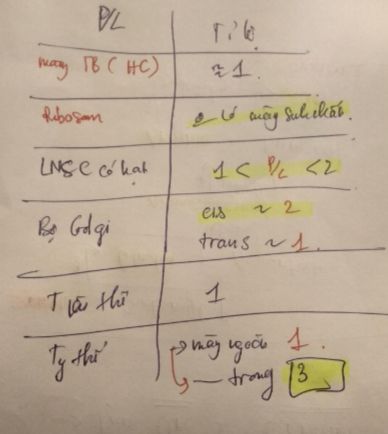 P/L Tỉ lệ
màng TB (HC) ≈ 1.
Ribosom Ko có màng sinh chất.
LNSC có hạt 1 < P/L < 2
Bộ Golgi cis ~ 2
trans ~ 1.
T lâu thể 1
Ty thể → màng ngoài 1.
→ — trong 3